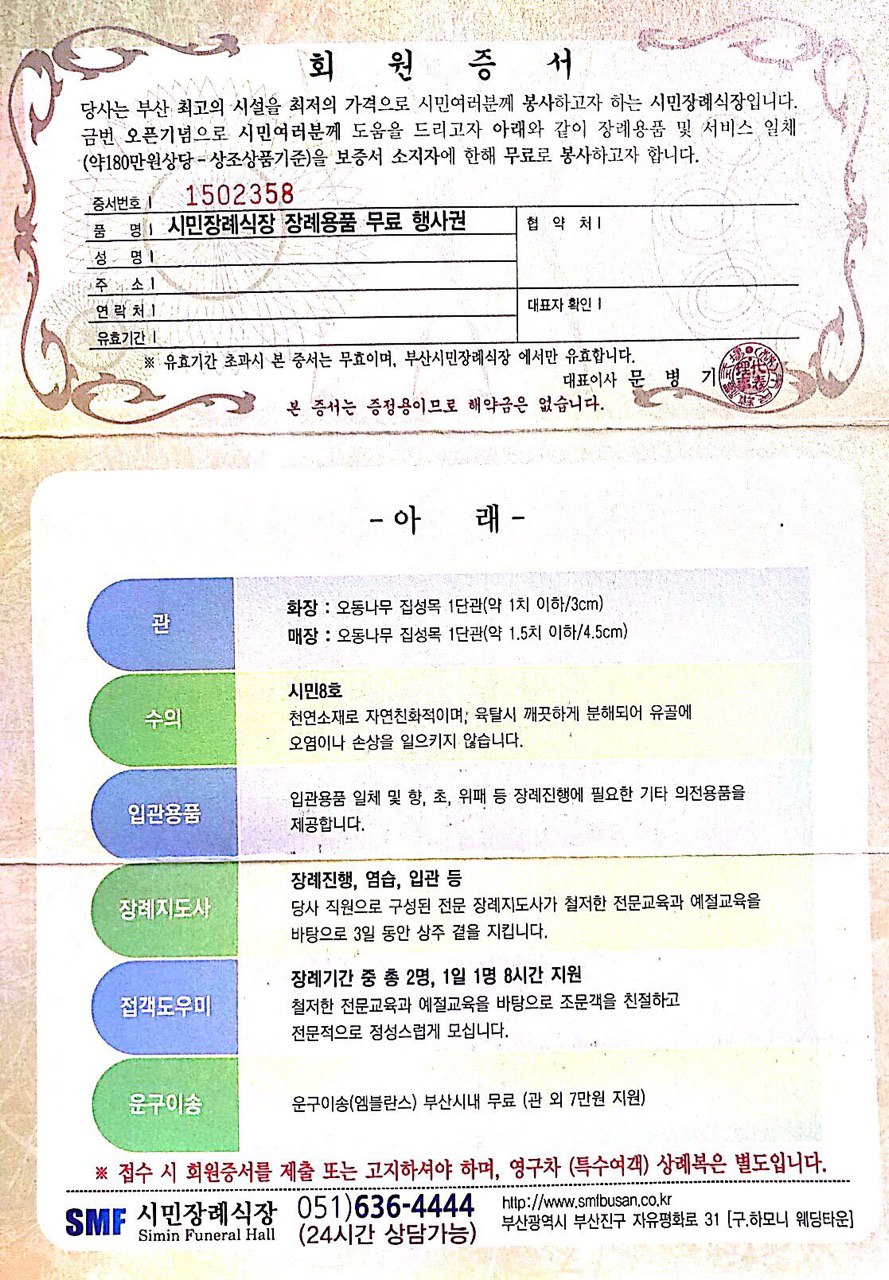 회 원 증 서
당사는 부산 최고의 시설을 최저의 가격으로 시민여러분께 봉사하고자 하는 시민장례식장입니다.
금번 오픈기념으로 시민여러분께 도움을 드리고자 아래와 같이 장례용품 및 서비스 일체
(약180만원상당 - 상조상품기준)을 보증서 소지자에 한해 무료로 봉사하고자 합니다.
증서번호 | 1502358
품 명 | 시민장례식장 장례용품 무료 행사권
협 약 처 |
성 명 |
주 소 |
연 락 처 |
대표자 확인 |
유효기간 |
※ 유효기간 초과시 본 증서는 무효이며, 부산시민장례식장 에서만 유효합니다.
대표이사 문 병 기
본 증서는 증정용이므로 해약금은 없습니다.
- 아 래 -
관
화장 : 오동나무 집성목 1단관(약 1치 이하/3cm)
매장 : 오동나무 집성목 1단관(약 1.5치 이하/4.5cm)
수의
시민8호
천연소재로 자연친화적이며, 육탈시 깨끗하게 분해되어 유골에
오염이나 손상을 일으키지 않습니다.
입관용품
입관용품 일체 및 향, 초, 위패 등 장례진행에 필요한 기타 의전용품을
제공합니다.
장례지도사
장례진행, 염습, 입관 등
당사 직원으로 구성된 전문 장례지도사가 철저한 전문교육과 예절교육을
바탕으로 3일 동안 상주 곁을 지킵니다.
접객도우미
장례기간 중 총 2명, 1일 1명 8시간 지원
철저한 전문교육과 예절교육을 바탕으로 조문객을 친절하고
전문적으로 정성스럽게 모십니다.
운구이송
운구이송(엠블란스) 부산시내 무료 (관 외 7만원 지원)
※ 접수 시 회원증서를 제출 또는 고지하셔야 하며, 영구차 (특수여객) 상례복은 별도입니다.
SMF 시민장례식장
Simin Funeral Hall
051)636-4444
(24시간 상담가능)
http://www.smfbusan.co.kr
부산광역시 부산진구 자유평화로 31 [구.하모니 웨딩타운]